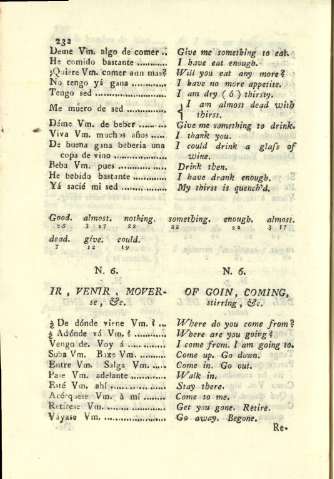 232
Deme Vm. algo de comer .. Give me something to eat.
He comido bastante ............ I have eat enough.
¿Quiere Vm. comer aun mas? Will you eat any more?
No tengo yá gana .............. I have no more appetite.
Tengo sed ..................... I am dry ( ó ) thirsty.
Me muero de sed ............. { I am almost dead with
thirst.
Déme Vm. de beber ........ Give me something to drink.
Viva Vm. muchos años ..... I thank you.
De buena gana beberia una I could drink a glass of
copa de vino ............... wine.
Beba Vm. pues .............. Drink then.
He bebido bastante .......... I have drank enough.
Yá sacié mi sed .............. My thirst is quench'd.
Good. almost. nothing. something. enough. almost.
dead. give. could.
N. 6. N. 6.
IR , VENIR , MOVER- OF GOIN, COMING,
se , &c. stirring , &c.
¿ De dónde viene Vm. ? ... Where do you come from?
¿ Adónde vá Vm. ? ........... Where are you going?
Vengo de. Voy á ............. I come from. I am going to.
Suba Vm. Baxe Vm. ........ Come up. Go down.
Entre Vm. Salga Vm. ..... Come in. Go out.
Pase Vm. adelante ........... Walk in.
Esté Vm. ahí ................. Stay there.
Acérquese Vm. á mí ........ Come to me.
Retirese Vm. .................. Get you gone. Retire.
Váyase Vm. ................... Go away. Begone.
Re-